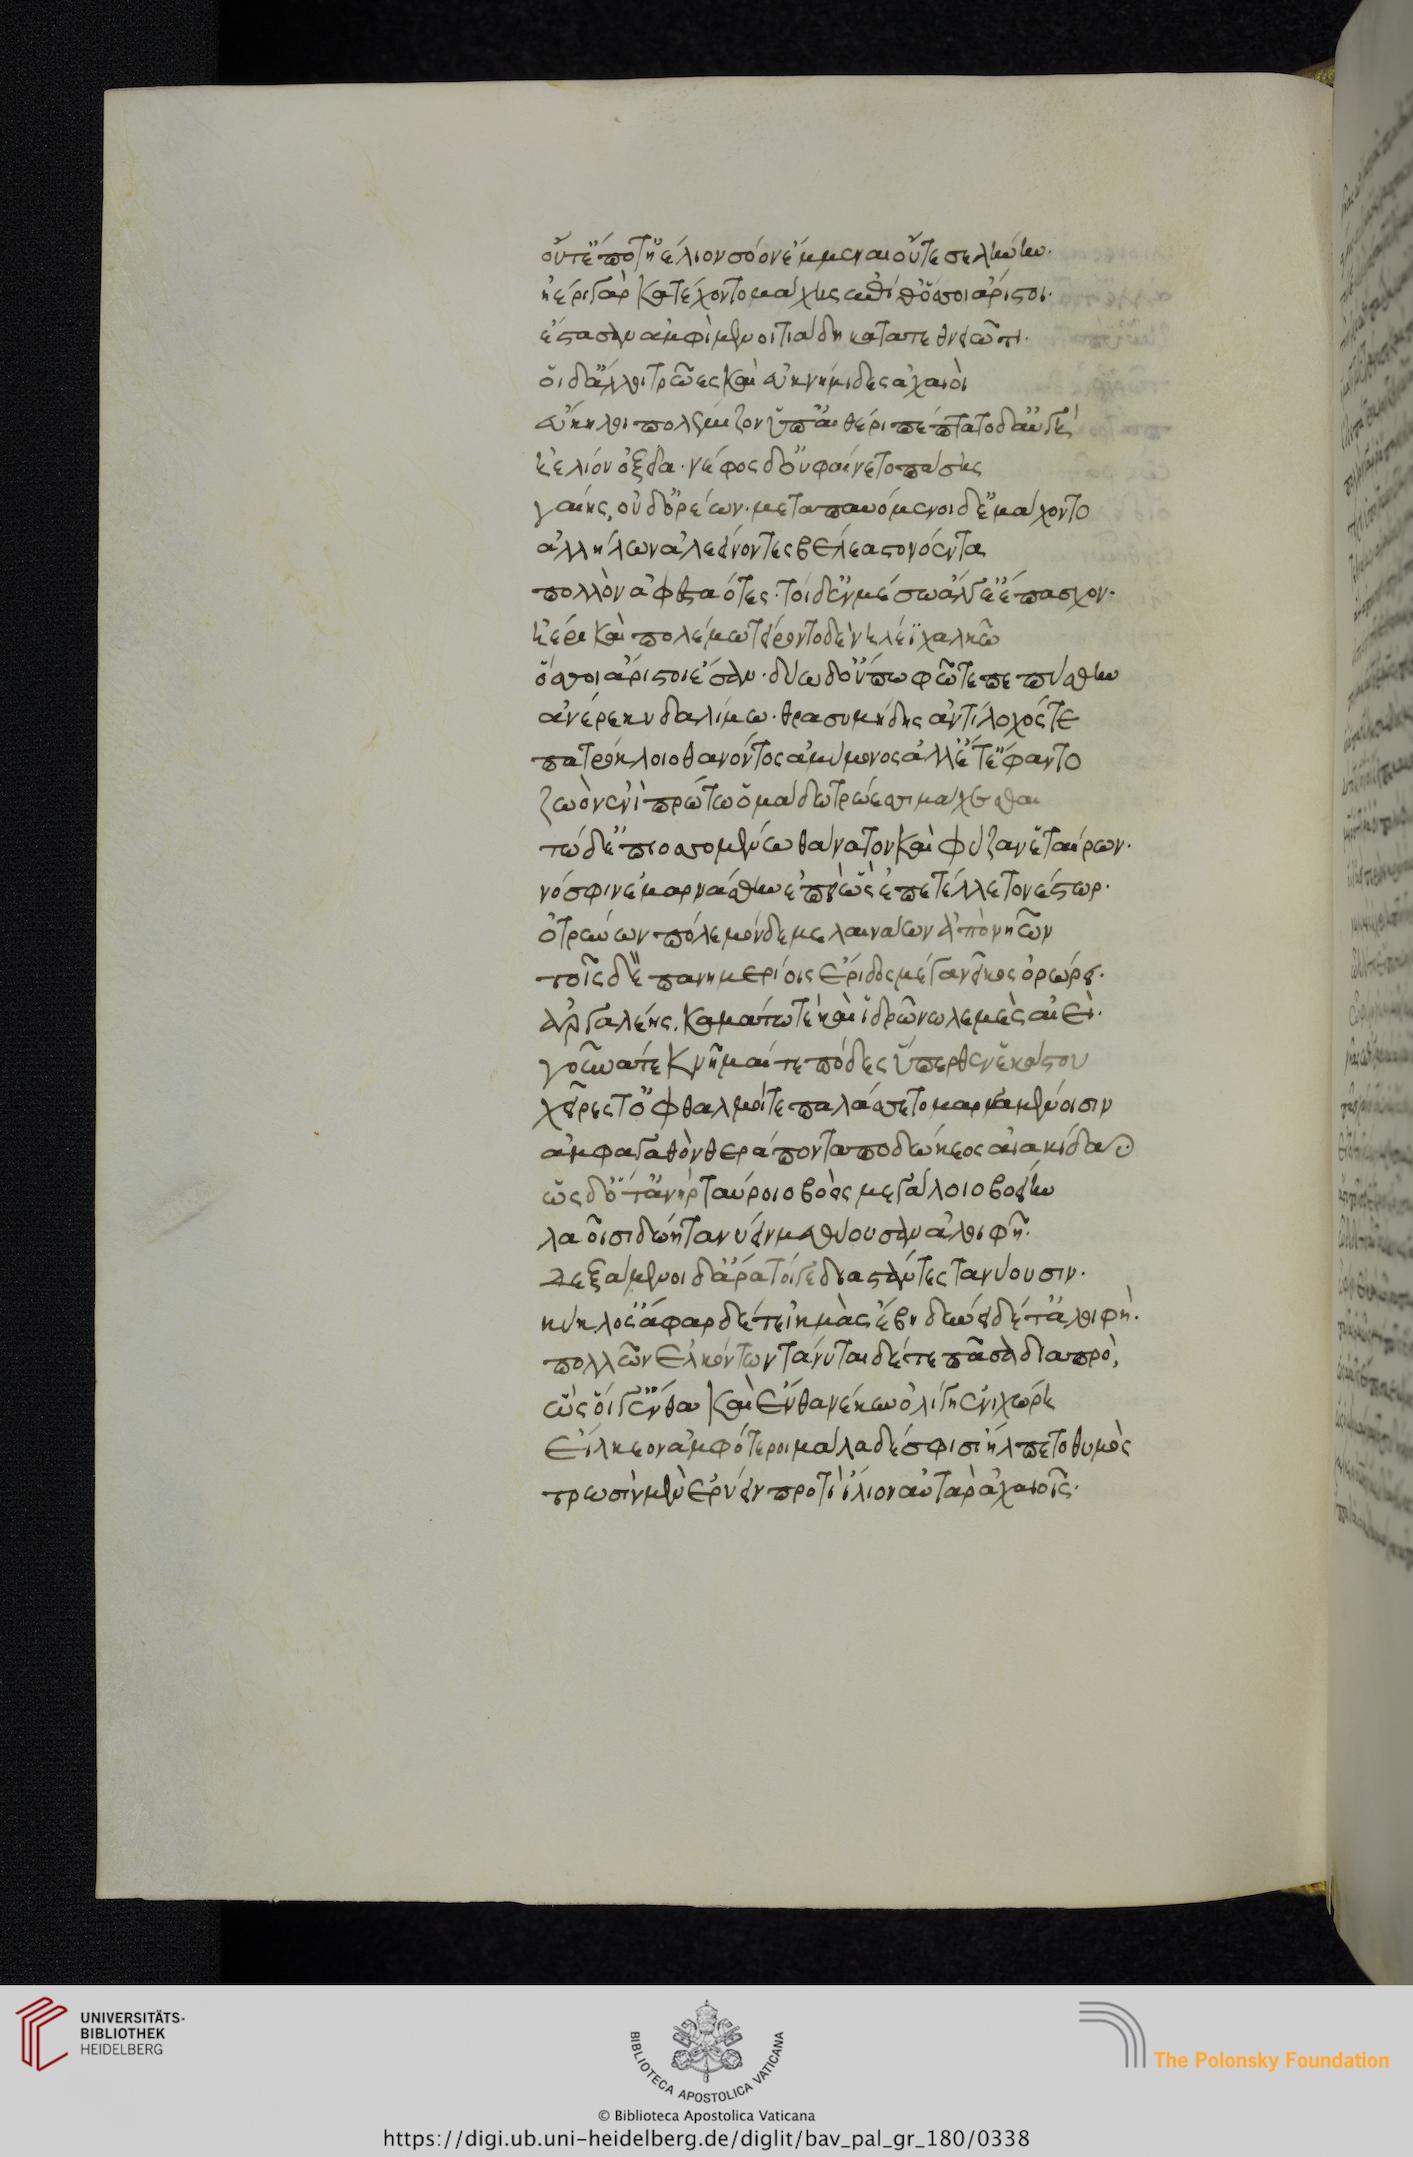 οὔτέ ποτ' ἠέλιον σόον ἔμμεναι οὔτε σελήνην·
ἠέρι γὰρ κατέχοντο μάχης ἐπί θ' ὅσσοι ἄριστοι·
ἕστασαν ἀμφὶ μενοιτιάδη κατατεθνειῶτι·
οἱ δ' ἄλλοι τρῶες καὶ εὐκνήμιδες ἀχαιοὶ
εὔκηλοι πολέμιζον ὑπ' αἰθέρι πέπτατο δ' αὐγὴ
ἠελίου ὀξεῖα· νέφος δ' οὐ φαίνετο πάσης
γαίης, οὐδ' ὀρέων· μεταπαυόμενοι δὲ μάχοντο
ἀλλήλων ἀλεείνοντες βέλεα στονόεντα
πολλὸν ἀφεσταότες· τοὶ δ' ἐν μέσω ἄλγε' ἔπασχον·
ἠέρι καὶ πολέμω τείροντο δὲ νηλέϊ χαλκῶ
ὅσσοι ἄριστοι ἔσαν· δύω δ' οὔπω φῶτε πεπύσθην
ἀνέρε κυδαλίμω· θρασυμήδης ἀντίλοχός τε
πατρόκλοιο θανόντος ἀμύμονος ἀλλ' ἔτ' ἔφαντο
ζωὸν ἐνὶ πρώτω ὁμάδω τρώεσσι μάχεσθαι
τὼ δ' ἐπιοσσομένω θάνατον καὶ φύζαν ἑταίρων·
νόσφιν ἐμαρνάσθην ἐπεὶ ὣς ἐπετέλλετο νέστωρ·
ὀτρύνων πόλεμόνδε μελαινάων ἀπὸ νηῶν
τοῖς δὲ πανημερίοις ἔριδος μέγα νεῖκος ὀρώρει·
ἀργαλέης, καμάτω τὲ καὶ ἱδρῶ νωλεμὲς αἰεὶ·
γούνατά τε κνῆμαί τε πόδες θ' ὑπέρθεν ἑκάστου
χεῖρες τ' ὀφθαλμοί τε παλάσσετο μαρναμένοισιν
ἀμφ' ἀγαθὸν θεράποντα ποδώκεος αἰακίδαο
ὡς δ' ὅτ' ἀνὴρ ταύροιο βοὸς μεγάλοιο βοείην
λαοῖσι δώη τανύειν μεθύουσαν ἀλοιφῆ·
δεξάμενοι δ' ἄρα τοίγε διαστάντες τανύουσιν·
κυκλόσ' ἄφαρ δέ τε ἰκμὰς ἔβη δύνει δέ τ' ἀλοιφὴ·
πολλῶν ἑλκόντων τάνυται δέ τε πᾶσα διαπρὸ,
ὣς οἵ γ' ἔνθα καὶ ἔνθα νέκυν ὀλίγη ἐνὶ χώρη
εἵλκεον ἀμφότεροι μάλα δέ σφισιν ἤλπετο θυμὸς
τρωσὶν μὲν ἐρύειν προτὶ ἴλιον αὐτὰρ ἀχαιοῖς·
UNIVERSITÄTS-
BIBLIOTHEK
HEIDELBERG
BIBLIOTECA APOSTOLICA VATICANA
The Polonsky Foundation
© Biblioteca Apostolica Vaticana
https://digi.ub.uni-heidelberg.de/diglit/bav_pal_gr_180/0338